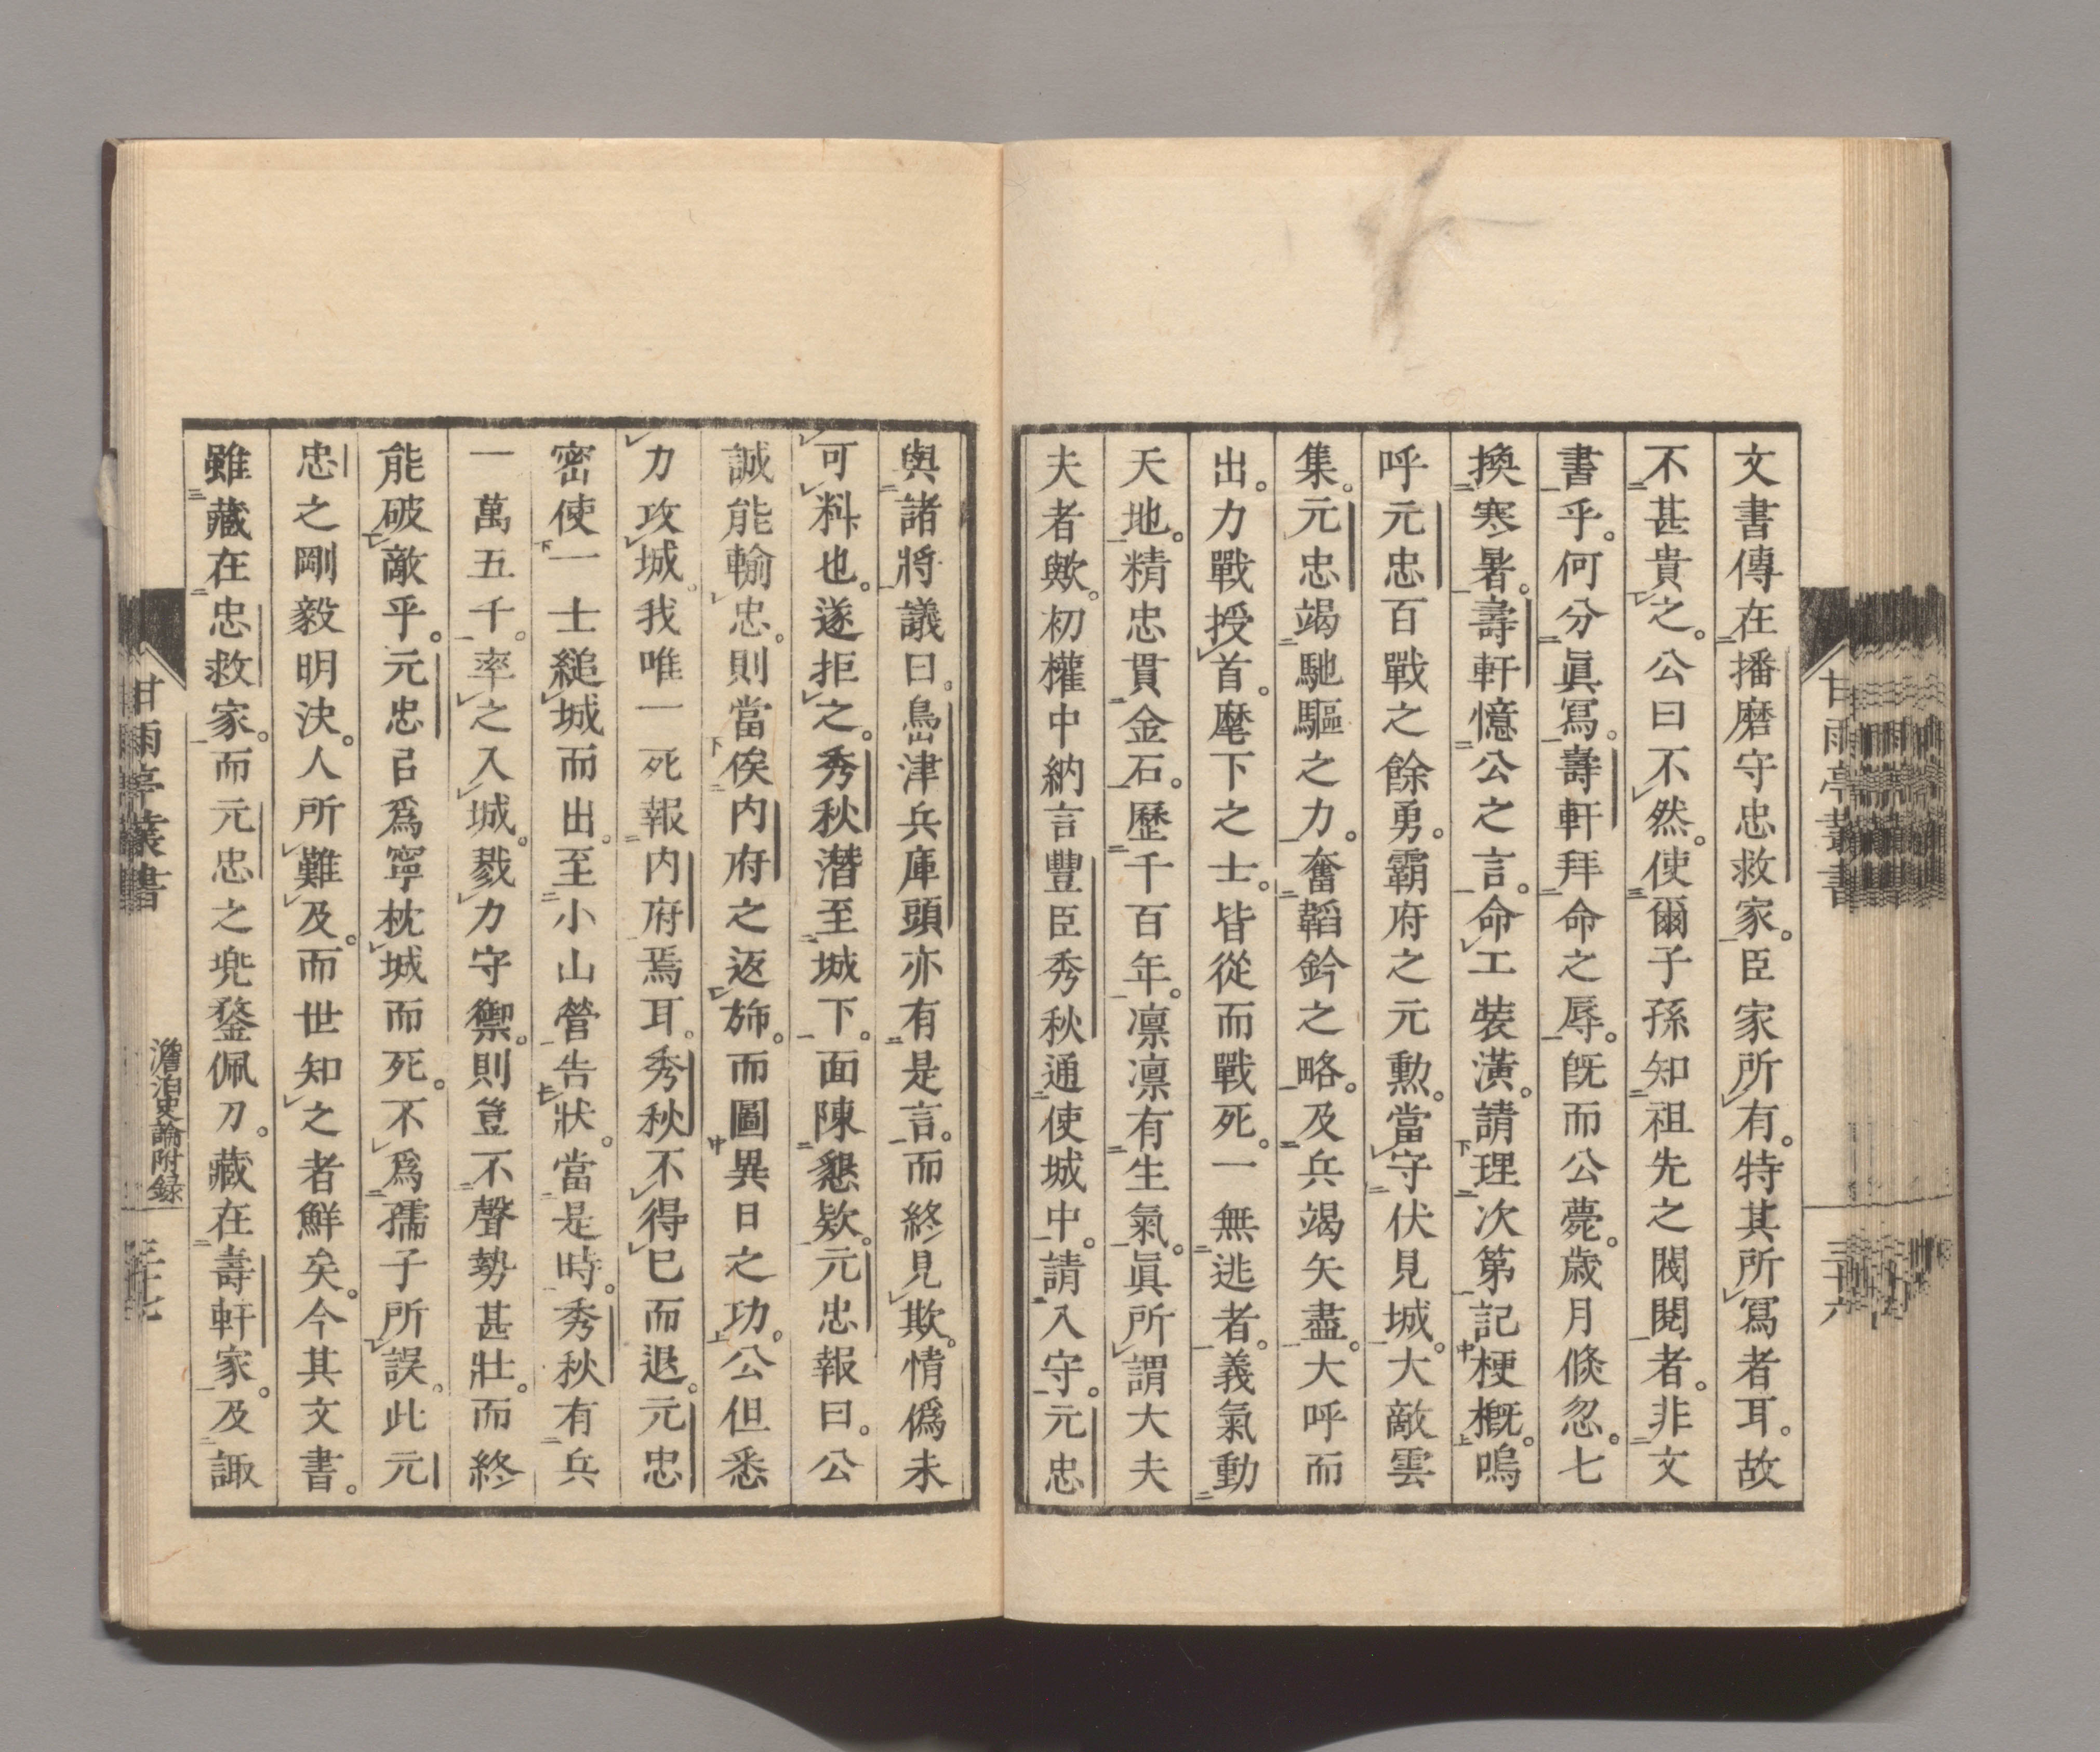 文書傳在播磨守忠救家。臣家所有。特其所寫者耳。故
不甚貴之。公曰不然。使爾子孫知祖先之閥閱者。非文
書乎。何分眞寫。壽軒拜命之辱。既而公薨。歲月倏忽。七
換寒暑。壽軒憶公之言。命工裝潢。請理次第記梗概。嗚
呼元忠百戰之餘勇。霸府之元勲。當守伏見城。大敵雲
集。元忠竭馳驅之力。奮韜鈐之略。及兵竭矢盡。大呼而
出。力戰授首。麾下之士。皆從而戰死。一無逃者。義氣動
天地。精忠貫金石。歷千百年。凛凛有生氣。眞所謂大夫
夫者歟。初權中納言豐臣秀秋通使城中。請入守。元忠
甘雨亭叢書
三十六
與諸將議曰。島津兵庫頭亦有是言。而終見欺。情僞未
可料也。遂拒之。秀秋潛至城下。面陳懇欵。元忠報曰。公
誠能輸忠。則當俟内府之返斾。而圖異日之功。公但悉
力攻城。我唯一死報内府焉耳。秀秋不得已而退。元忠
密使一士縋城而出。至小山營告狀。當是時。秀秋有兵
一萬五千。率之入城。戮力守禦。則豈不聲勢甚壯。而終
能破敵乎。元忠已爲寧枕城而死。不爲孺子所誤。此元
忠之剛毅明決。人所難及。而世知之者鮮矣。今其文書。
雖藏在忠救家。而元忠之兜鍪佩刀。藏在壽軒家。及諏
甘雨亭叢書
澹泊史論附録
三十七